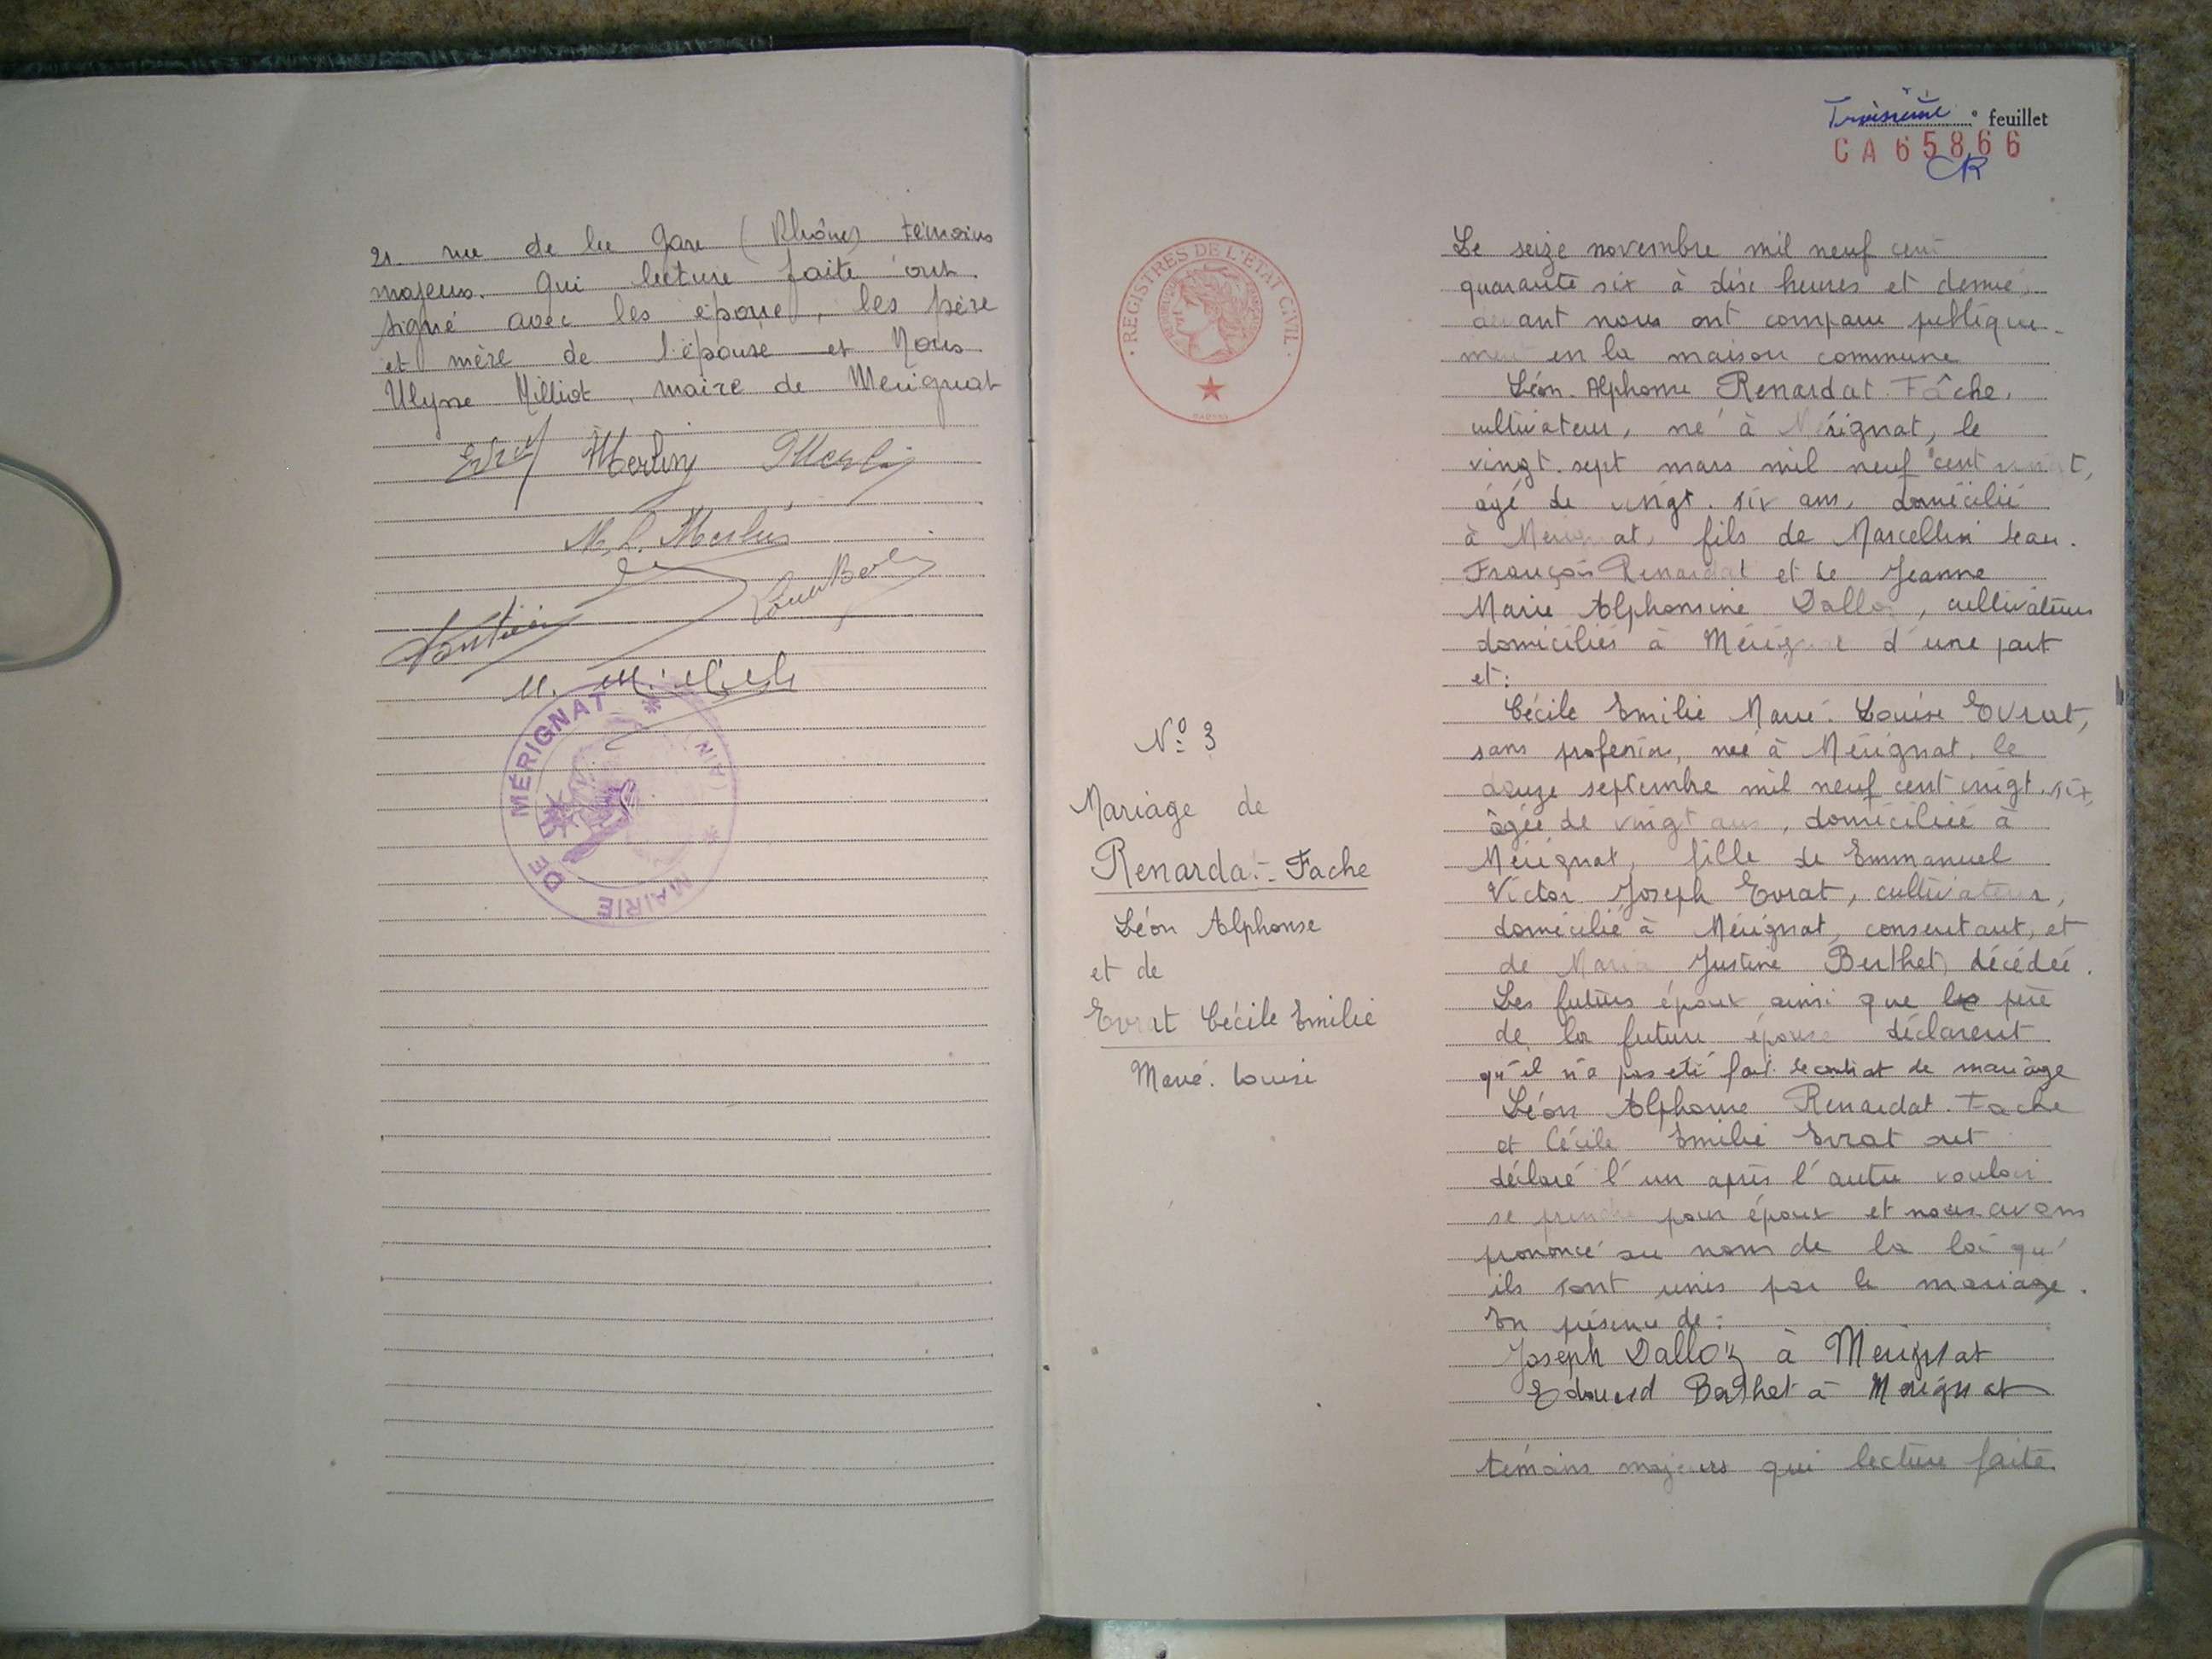 21. rue de la Gare (Rhône) témoins
majeurs. Qui lecture faite ont
signé avec les époux, les père
et mère de l'épouse et Nous
Ulysse Milliat, maire de Mérignat
Evrat Merlin Merlin
M. L. Merlin
M. Milliat
MAIRIE DE MÉRIGNAT (AIN)
Troisième feuillet
CA 65866
CR
REGISTRES DE L'ETAT CIVIL
N° 3
Mariage de
Renardat-Fache
Léon Alphonse
et de
Evrat Cécile Emilie
Marie. Louise
Le seize novembre mil neuf cent
quarante six à dix heures et demie,
devant nous ont comparu publique-
ment en la maison commune
Léon. Alphonse Renardat. Fâche,
cultivateur, né à Mérignat, le
vingt. sept mars mil neuf cent vingt,
âgé de vingt. six ans, domicilié
à Mérignat, fils de Marcellin Jean.
François Renardat et de Jeanne
Marie Alphonsine Dalloz, cultivateurs
domiciliés à Mérignat d'une part
et:
Cécile Emilie Marie. Louise Evrat,
sans profession, née à Mérignat, le
douze septembre mil neuf cent vingt. six,
âgée de vingt ans, domiciliée à
Mérignat, fille de Emmanuel
Victor Joseph Evrat, cultivateur,
domicilié à Mérignat, consentant, et
de Maria Justine Berthet, décédée.
Les futurs époux ainsi que le père
de la future épouse déclarent
qu'il n'a pas été fait de contrat de mariage
Léon Alphonse Renardat. Fache
et Cécile Emilie Evrat ont
déclaré l'un après l'autre vouloir
se prendre pour époux et nous avons
prononcé au nom de la loi qu'
ils sont unis par le mariage.
En présence de:
Joseph Dalloz à Mérignat
Edouard Berthet à Mérignat
témoins majeurs qui lecture faite